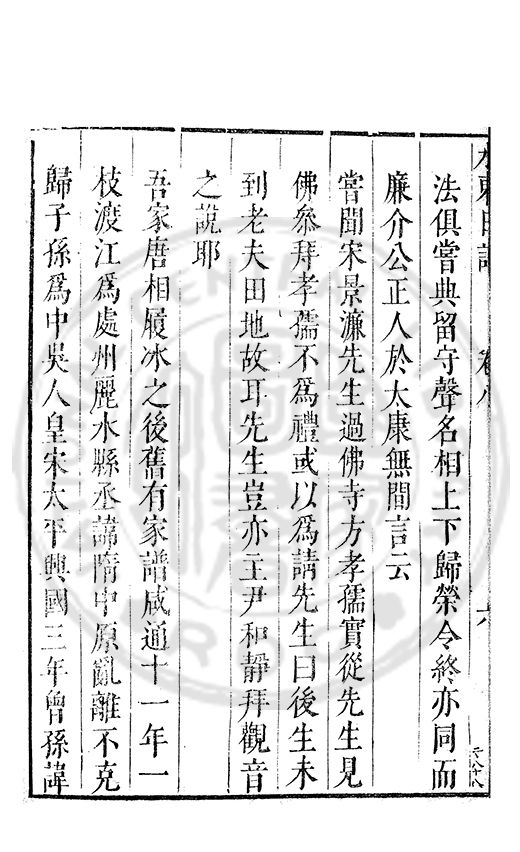 法俱嘗典留守聲名相上下歸榮令終亦同而
廉介公正人於太康無間言云
嘗聞宋景濂先生過佛寺方孝孺實從先生見
佛叅拜孝孺不爲禮或以爲請先生曰後生未
到老夫田地故耳先生豈亦主尹和靜拜觀音
之說耶
吾家唐相履冰之後舊有家譜咸通十一年一
枝渡江爲處州麗水縣丞諱隋中原亂離不克
歸子孫爲中吳人皇宋太平興國三年曾孫諱